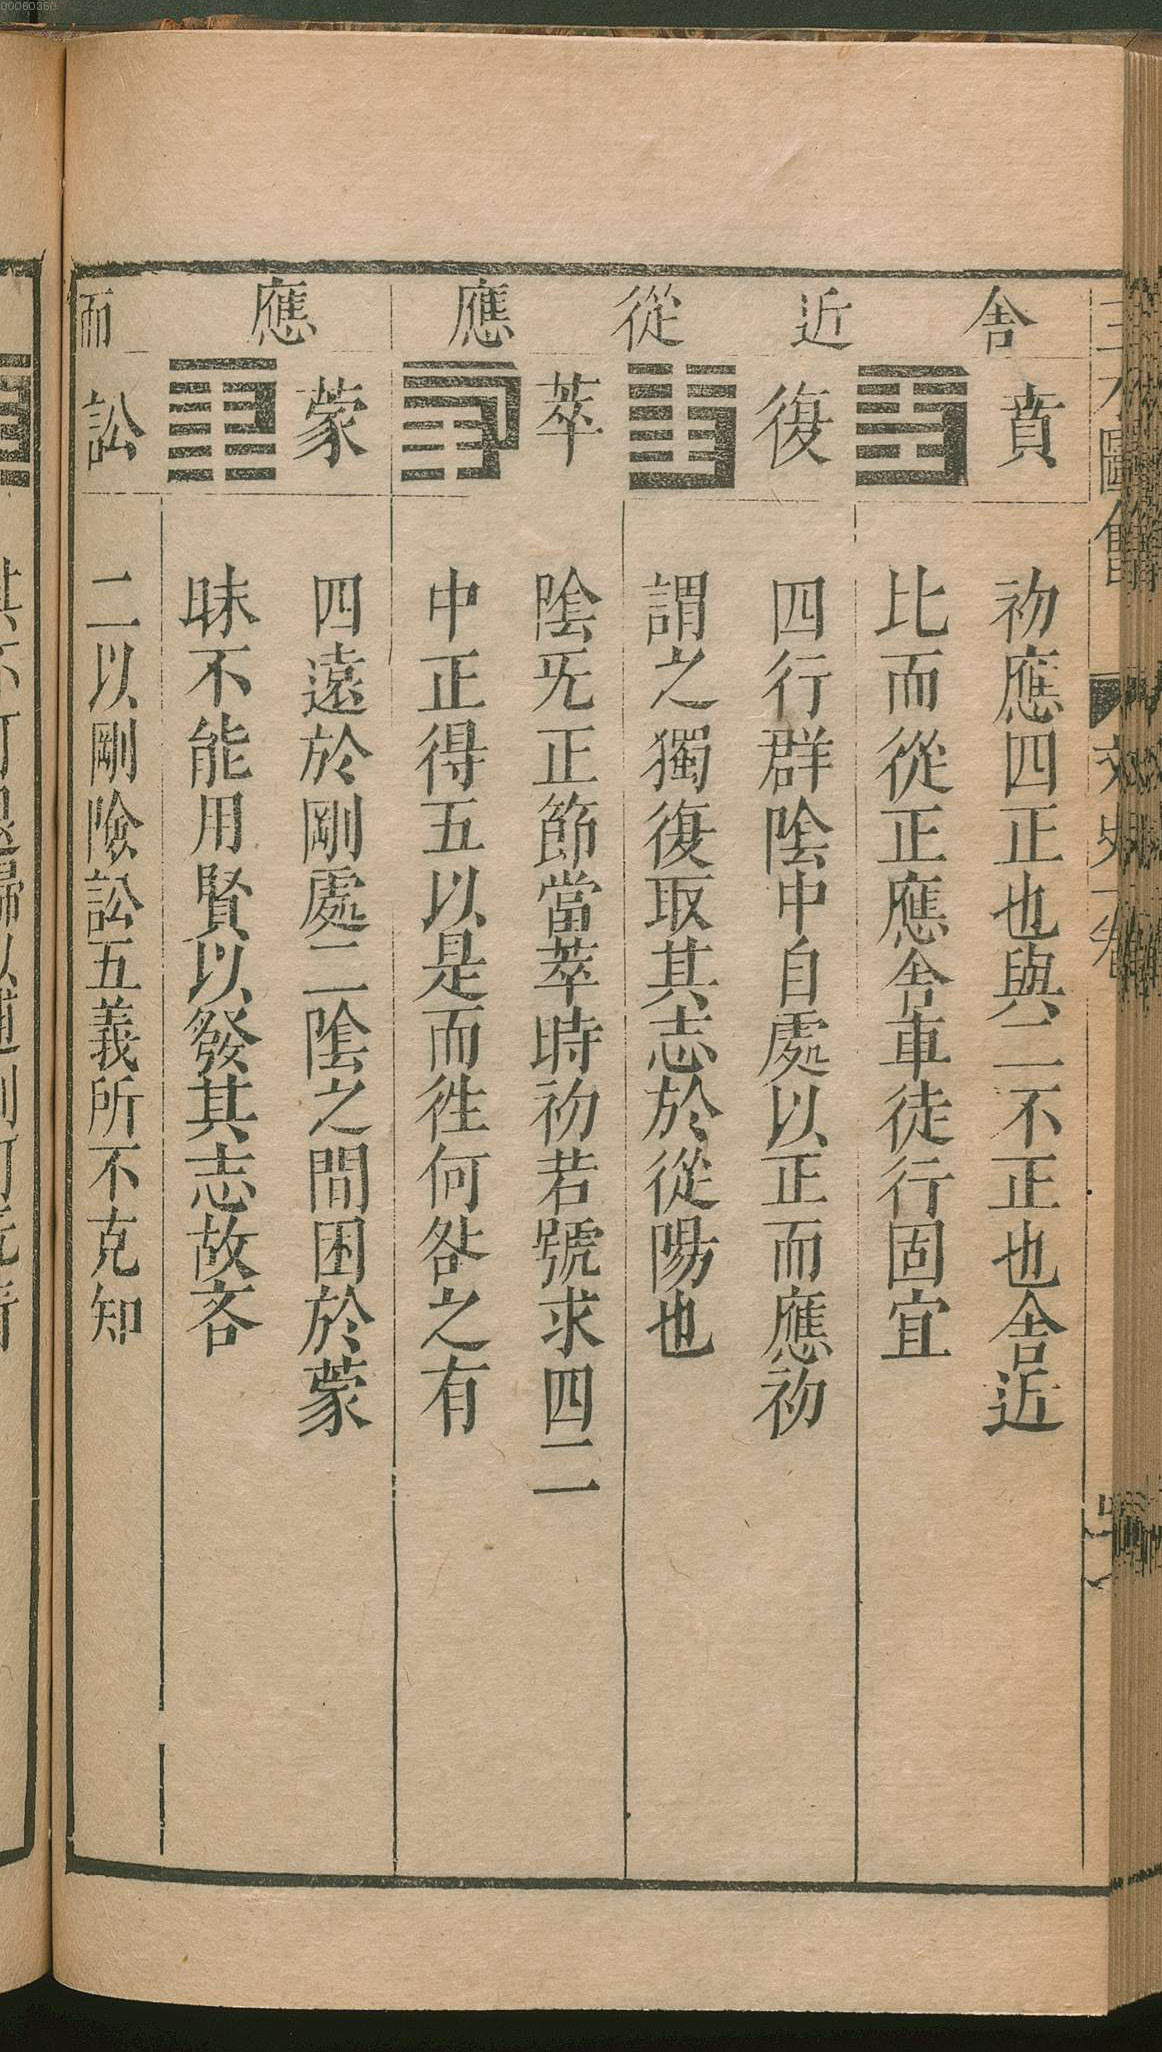 00060360
舍近從應
應而
賁
初應四正也與二不正也舍近
比而從正應舍車徒行固宜
復
四行群陰中自處以正而應初
謂之獨復取其志於從陽也
萃
陰旡正節當萃時初若號求四二
中正得五以是而徃何咎之有
蒙
四遠於剛處二陰之間困於蒙
昧不能用賢以發其志故吝
訟
二以剛險訟五義所不克知